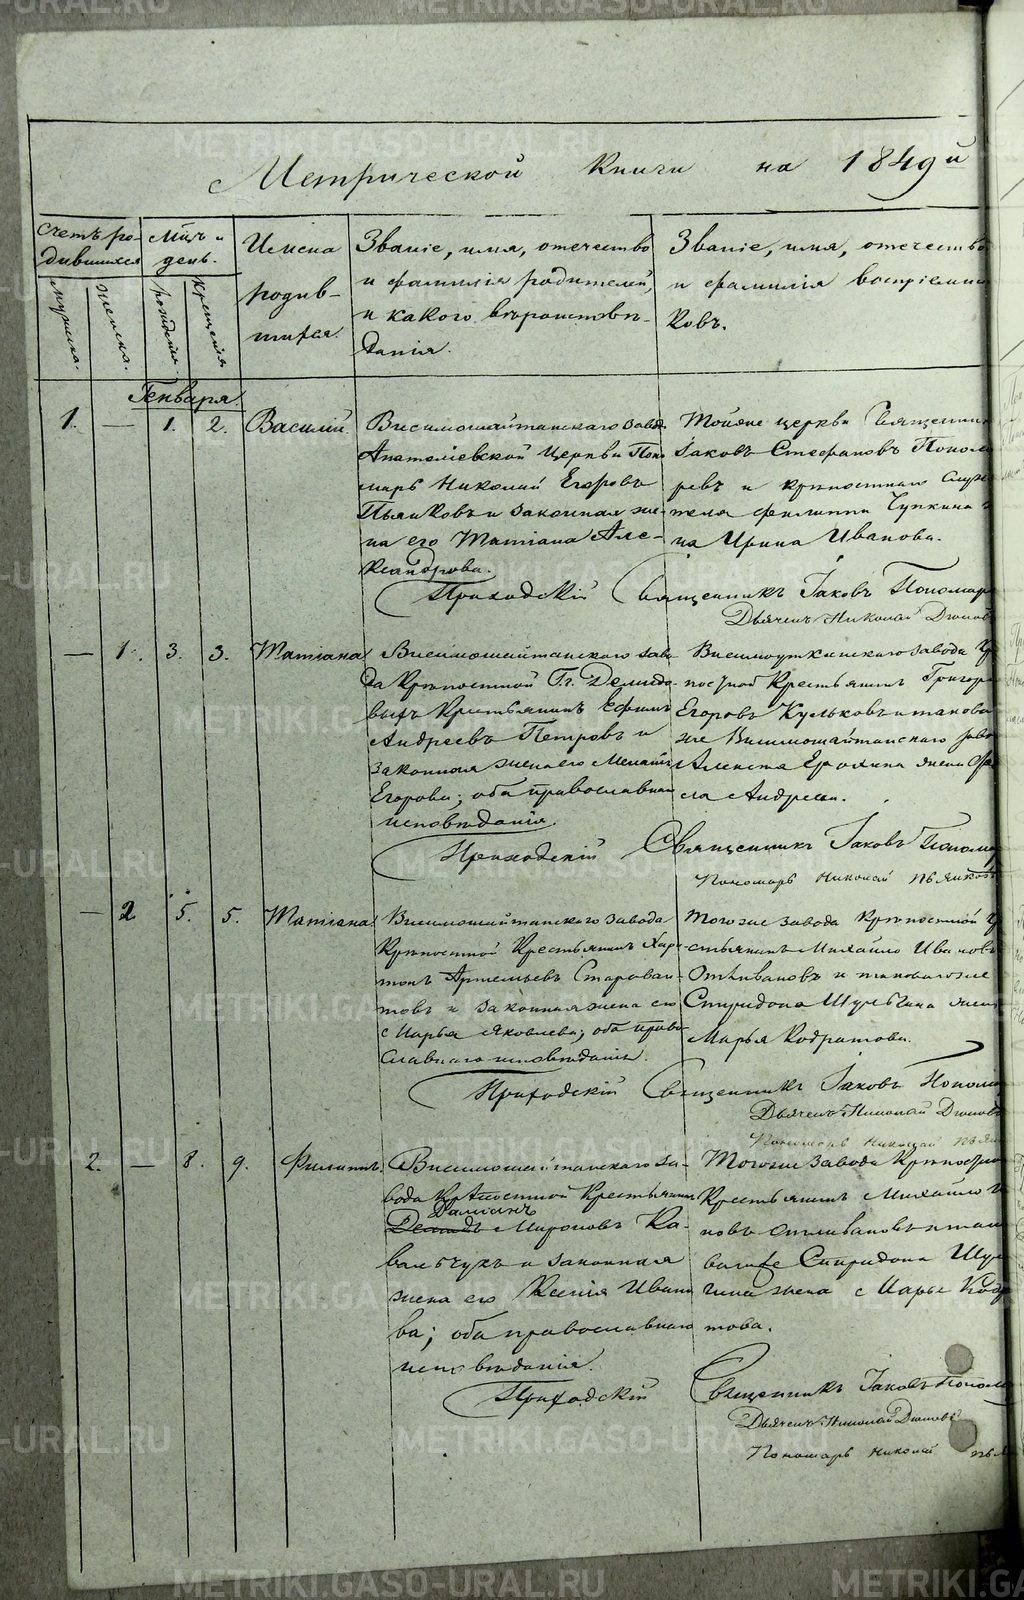 Метрической книги на 1849й
Счетъ ро-
дившихся
Мцъ и
день.
Имена
родив-
шихся.
Званіе, имя, отечество
и фамилія родителей,
и какого вѣроисповѣ-
данія.
Званіе, имя, отечество
и фамилія воспріемни
ковъ.
Мужска.
Женска.
рожденія.
крещенія
Генваря.
1. — 1. 2. Василій.
Висимошайтанскаго завод.
Анатоліевской Церкви Поно
марь Николай Егоровъ
Пьянковъ и законная же-
на его Татіана Але-
ксандрова.
Тойже церкви Священни
Іаковъ Стефановъ Пономо
ревъ и крѣпостнаго служ
теля Филиппа Чупкина
на Ирина Иванова.
Приходскій Священникъ Іаковъ Пономар
Дьячекъ Николай
— 1. 3. 3. Татіана
Висимошайтанскаго заво
да крѣпостной Гг. Демидо-
выхъ Крестьянинъ Ефимъ
Андреевъ Петровъ и
законная жена его
Егорова; оба православнаго
исповѣданія.
Висимоуткинскаго завода Кр
постной Крестьянинъ Григор
Егоровъ Кульковъ и таково
же Висимошайтанскаго заво
Алексѣя жена
Андреева.
Приходскій Священникъ Іаковъ Пономар
Пономарь Николай Пьянков
— 2 5. 5. Татіана.
Висимошайтанскаго завода
Крѣпостной Крестьянинъ Хари
тонъ Артемьевъ
и законная жена его
Марья Яковлева; оба право
славнаго исповѣданія.
Тогоже завода Крѣпостной Кр
стьянинъ Михайло Ивановъ
Отливановъ и таковагоже
Спиридона Шульгина жена
Марья Кодратова.
Приходскій Священникъ Іаковъ Поном
Дьячекъ Николай
Пономарь Николай Пьян
2. — 8. 9. Филиппъ.
Висимошайтанскаго за-
вода Крѣпостной Крестьянинъ
Даміанъ
Мироновъ Ко-
вальчукъ и законная
жена его Ксенія Ивано
ва; оба православнаго
исповѣданія.
Тогоже завода Крѣпостной
Крестьянинъ Михайло И
новъ Отливановъ и тако
ваго же Спиридона Шул
гина жена Марья Кодр
това.
Приходскій Священникъ Іаковъ Поном
Дьячекъ Николай
Пономарь Николай Пья
METRIKI.GASO-URAL.RU